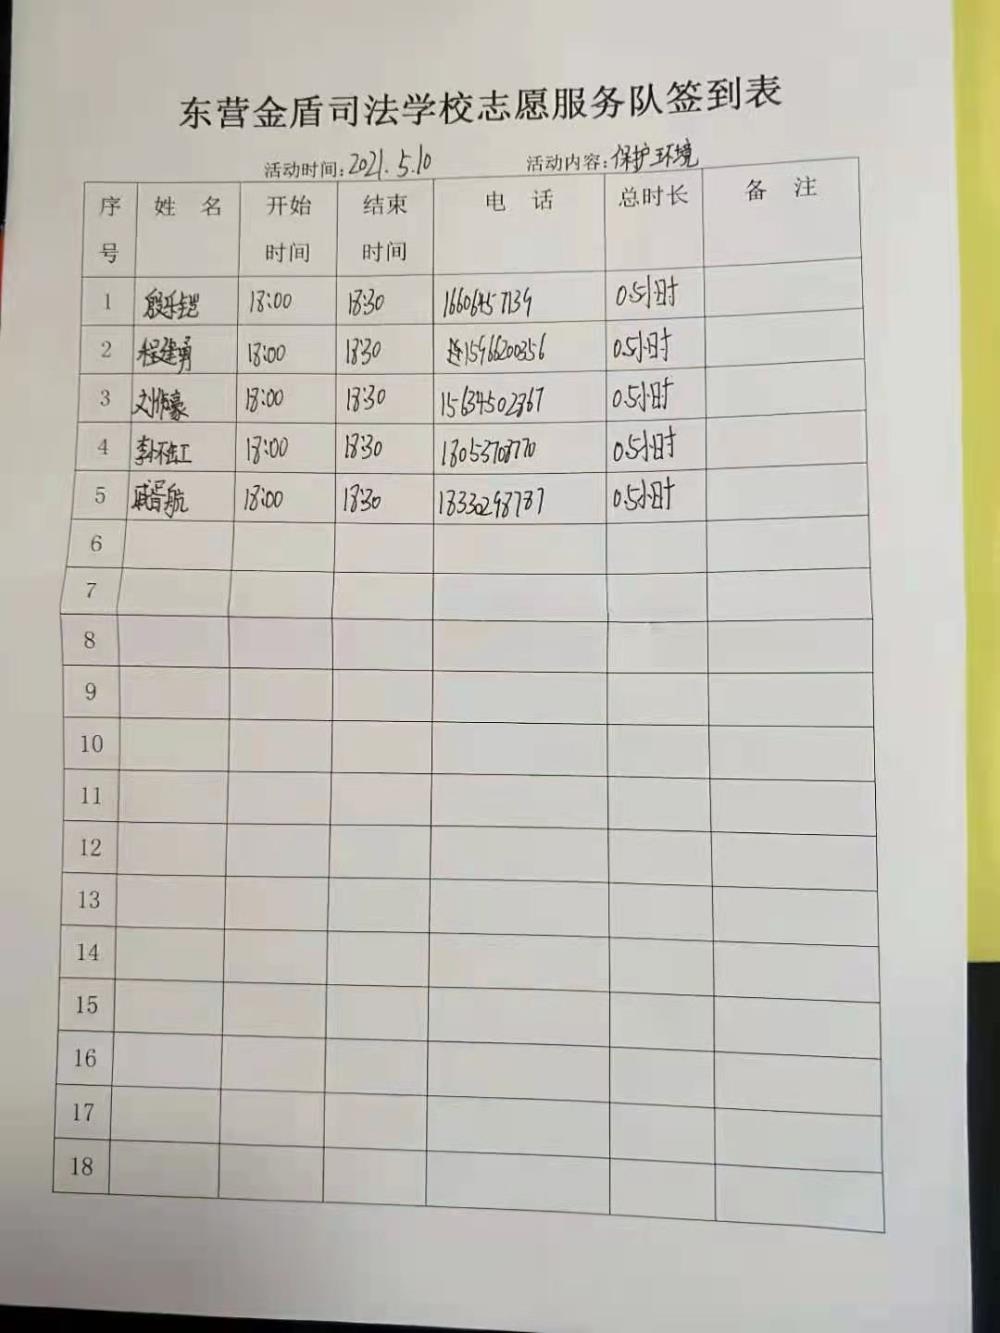 东营金盾司法学校志愿服务队签到表
活动时间:2021.5.10 活动内容:保护环境
序号 姓名 开始时间 结束时间 电话 总时长 备注
1 殷乐铠 18:00 18:30 16606457139 0.5小时
2 程建勇 18:00 18:30 15966200356 0.5小时
3 刘伟豪 18:00 18:30 0.5小时
4 18:00 18:30 0.5小时
5 航 18:00 18:30 18330298787 0.5小时
6
7
8
9
10
11
12
13
14
15
16
17
18